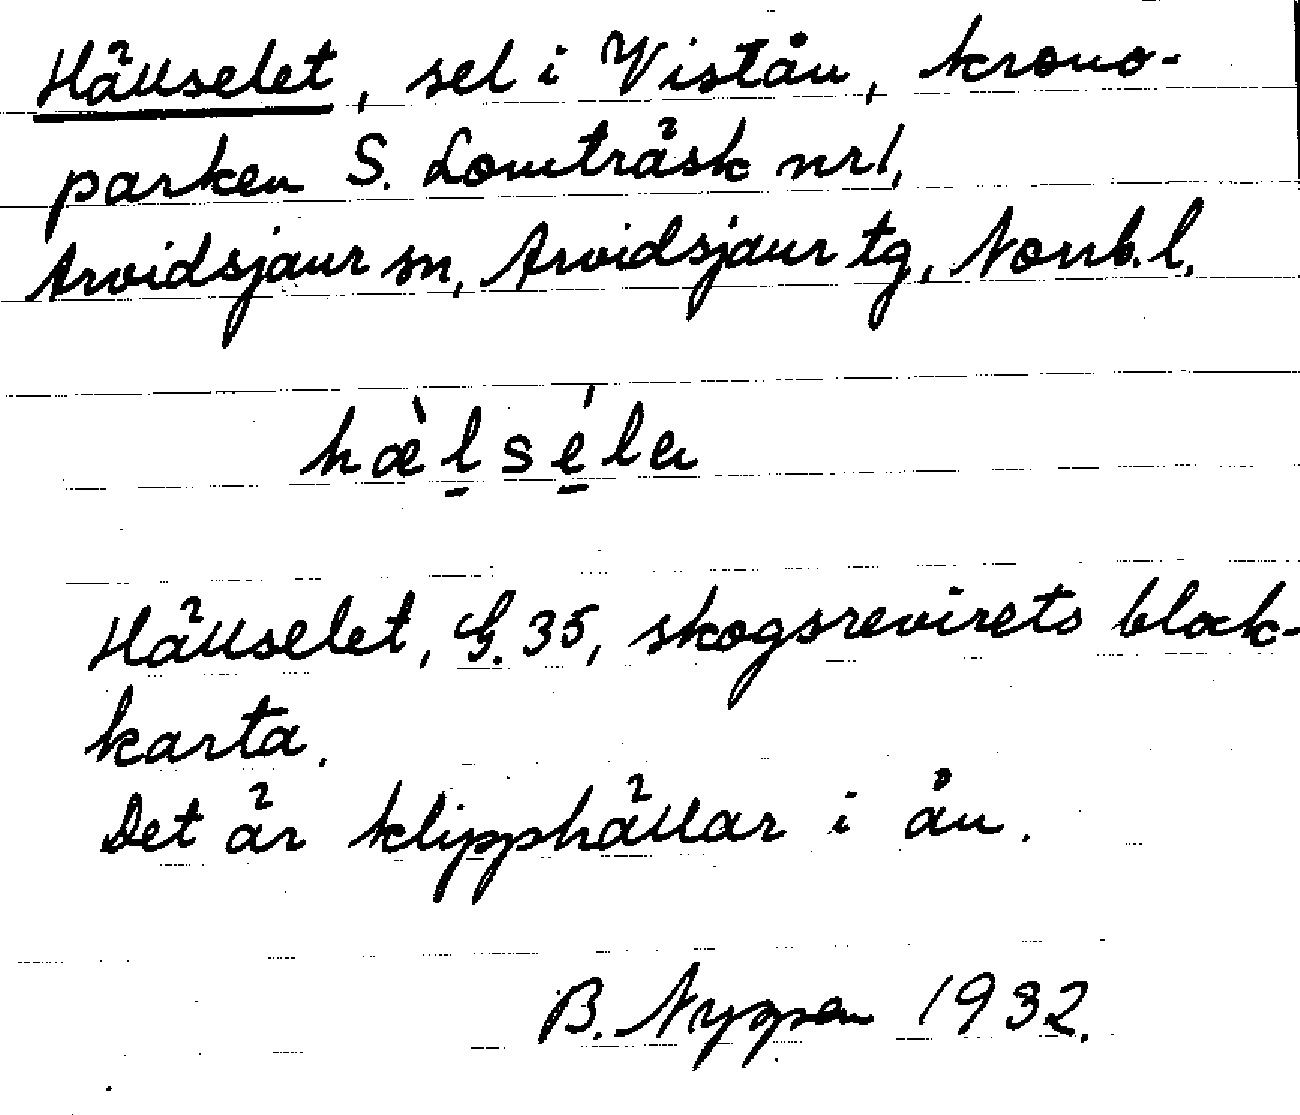 Hällselet, sel i Viståu, krono-
parken S. Lomträsk nr 1,
Arvidsjaur sn, Arvidsjaur tg, Norrb. l.
hæ̀lséla
Hällselet, G. 35, skogsrevirets block-
karta.
Det är klipphällar i ån.
B. Nyppen 1932.